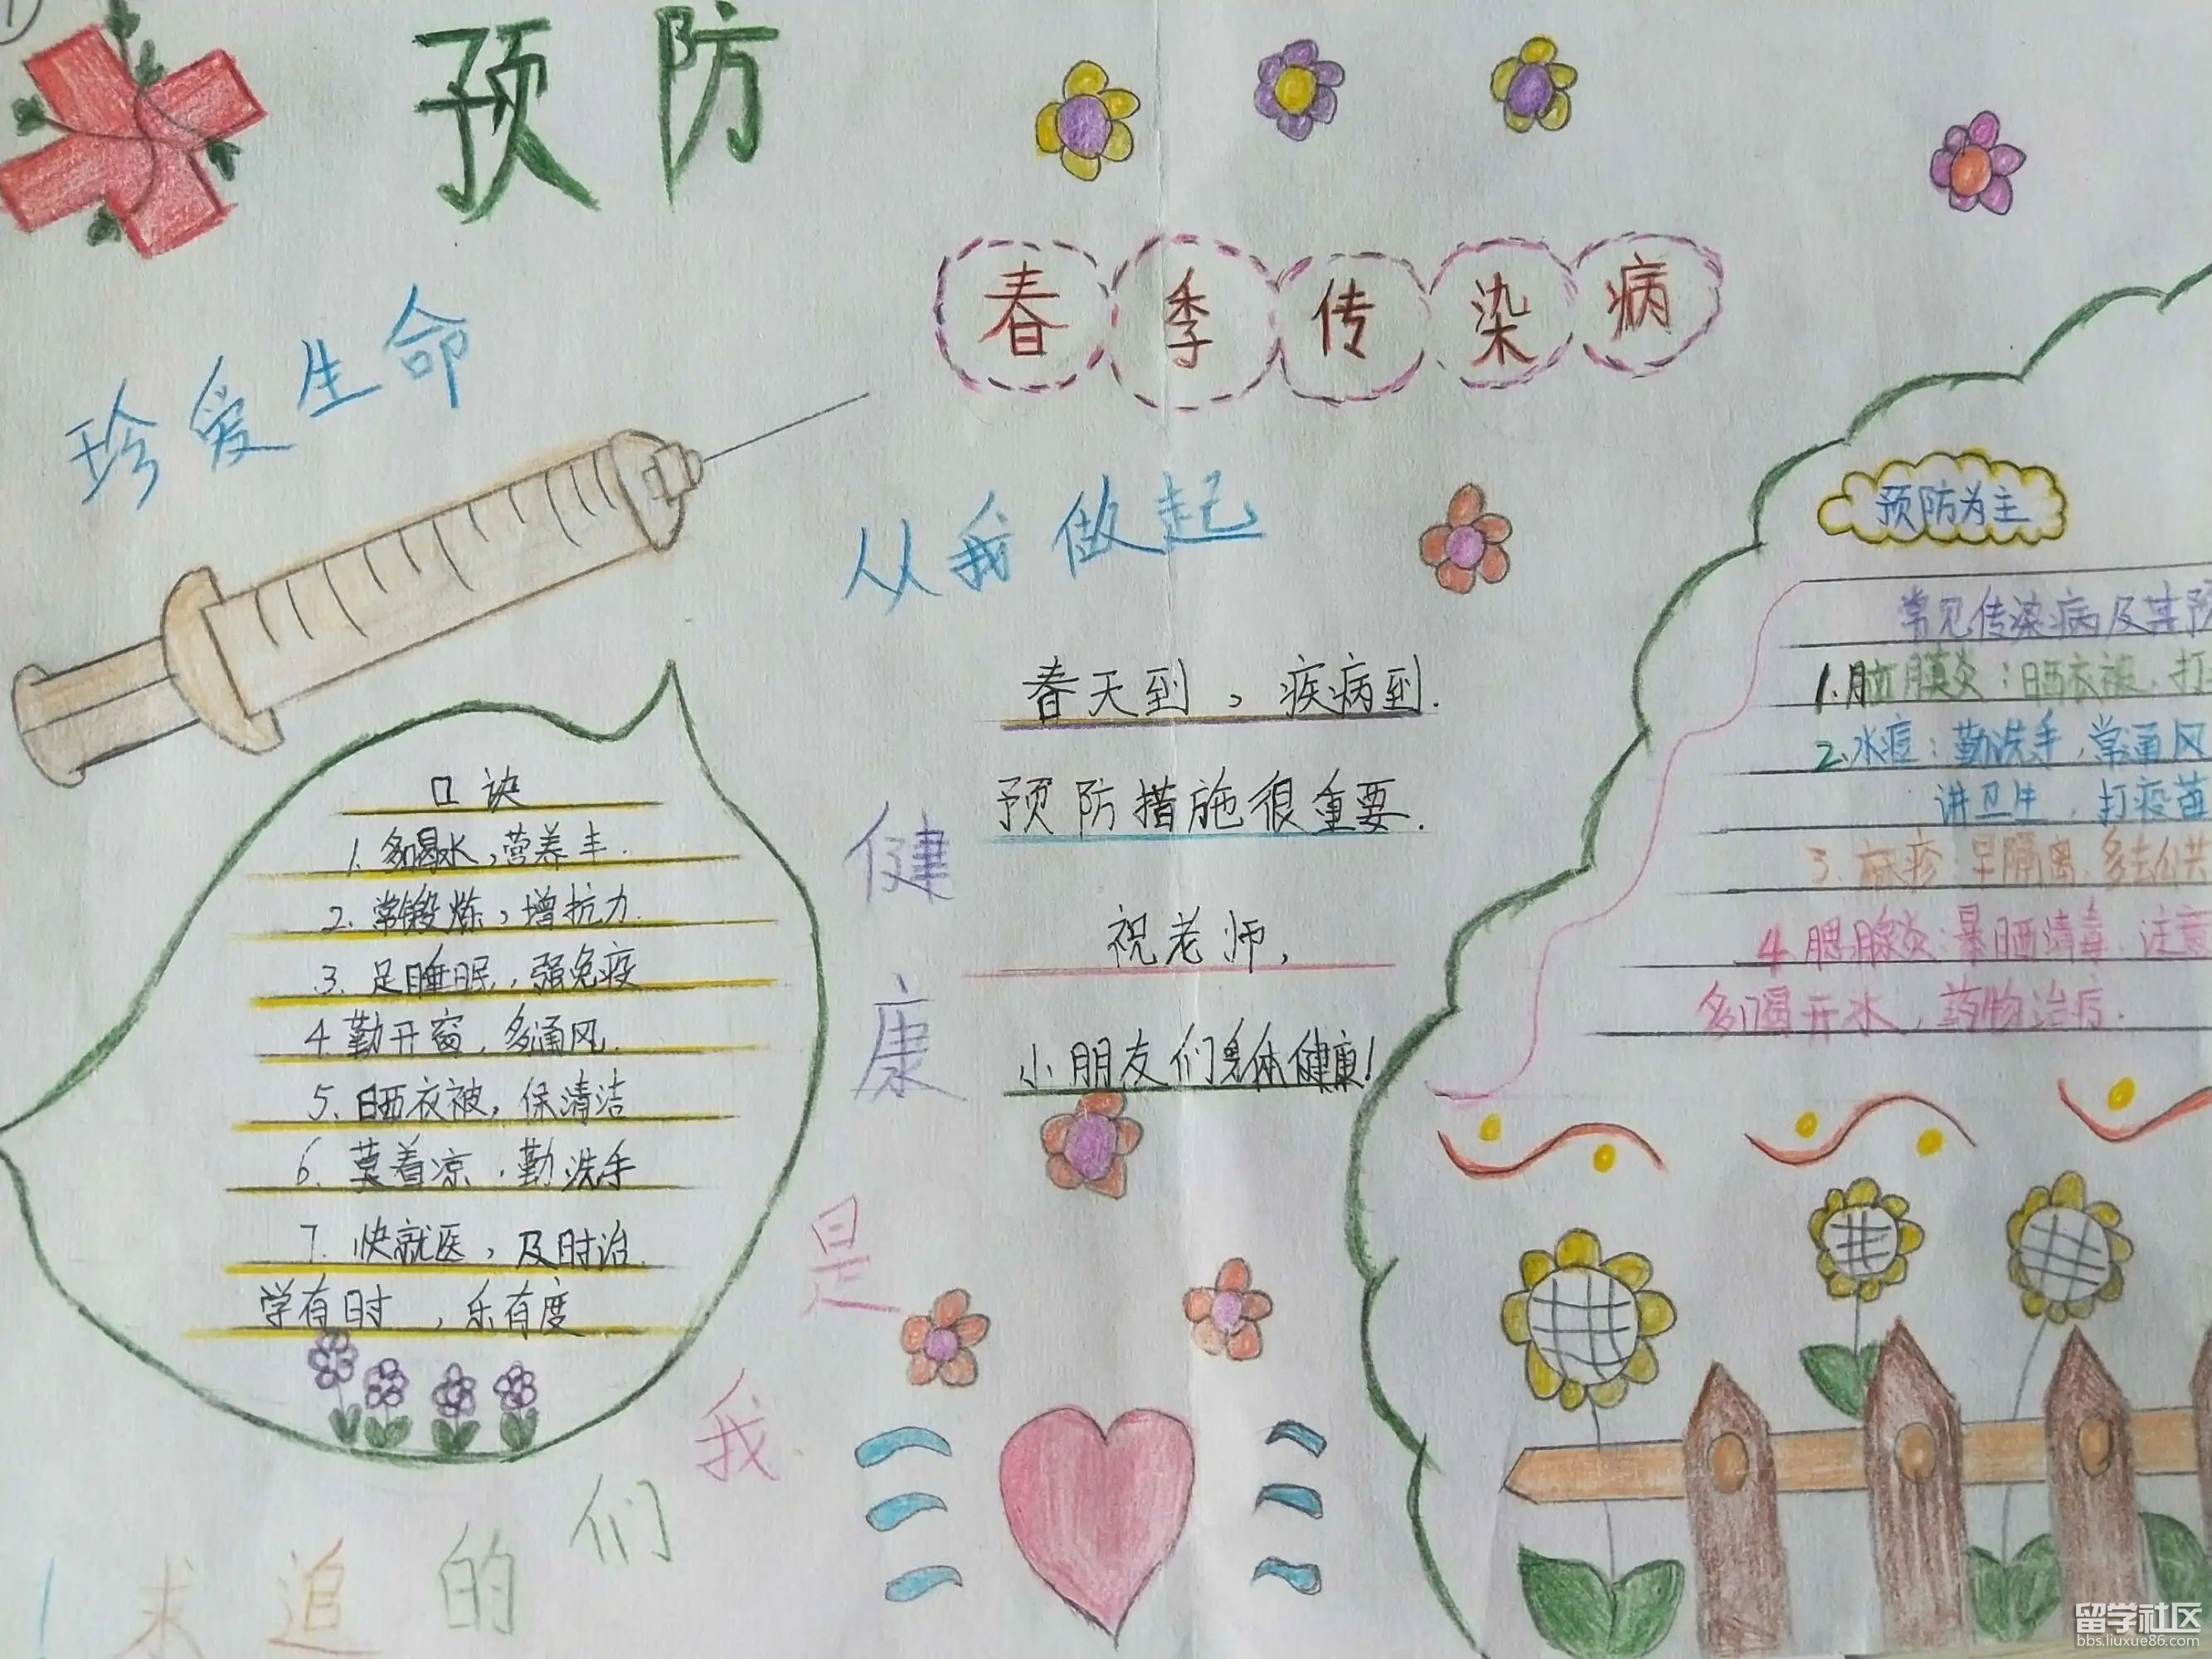 预防
春季传染病
珍爱生命
从我做起
口诀
1. 多喝水，营养丰.
2. 常锻炼，增抗力.
3. 足睡眠，强免疫
4. 勤开窗，多通风.
5. 晒衣被，保清洁
6. 莫着凉，勤洗手
7. 快就医，及时治.
学有时，乐有度
春天到，疾病到.
预防措施很重要.
祝老师，
小朋友们身体健康！
健康是我们的追求！
预防为主
常见传染病及其预
1. 脑膜炎：晒衣被，打
2. 水痘：勤洗手，常通风
讲卫生，打疫苗
3. 麻疹：早隔离，多去公共
4. 腮腺炎：暴晒清毒，注意
多喝开水，药物治疗.
留学社区
bbs.liuxue86.com